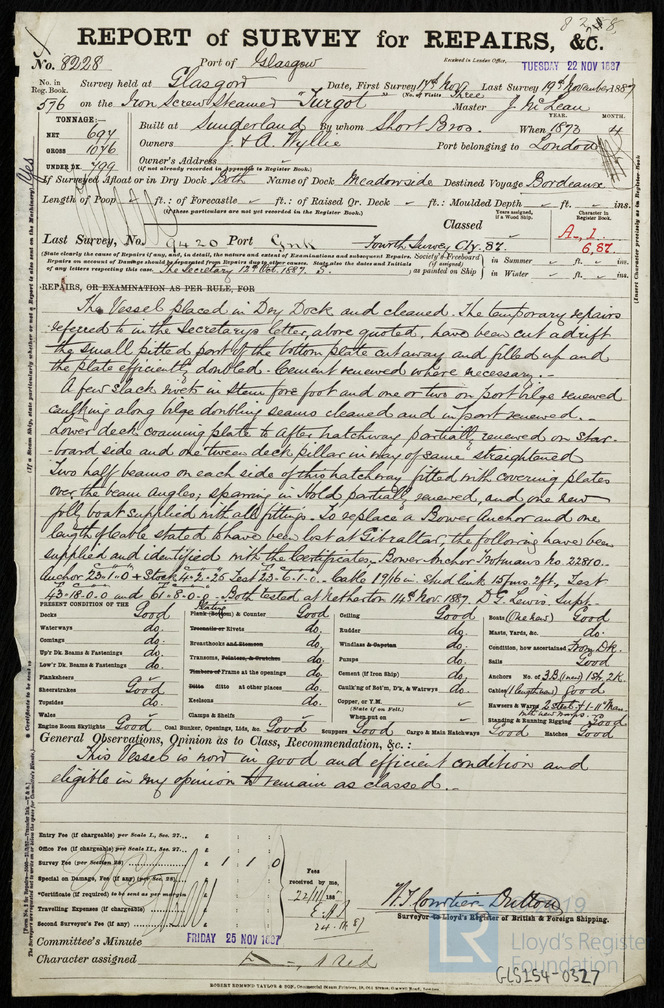 8228
REPORT of SURVEY for REPAIRS, &c.
No. 8228 Port of Glasgow Received in London Office, TUESDAY 22 NOV 1887
No. in Reg. Book. Survey held at Glasgow Date, First Survey 14th Nov Last Survey 19th November 1887
(No. of Visits Three)
576 on the Iron Screw Steamer "Turgot" Master J. McLean
TONNAGE:— YEAR. MONTH.
NET 697 Built at Sunderland By whom Short Bros. When 1873 4
GROSS 1076 Owners J. & A. Wyllie Port belonging to London
UNDER DK. 799 Owner's Address
(if not already recorded in Appendix to Register Book.)
If Surveyed Afloat or in Dry Dock Both Name of Dock Meadowside Destined Voyage Bordeaux
Length of Poop ft.: of Forecastle ft.: of Raised Qr. Deck ft.: Moulded Depth ft. ins.
(if these particulars are not yet recorded in the Register Book.)
Years assigned, if a Wood Ship. Character in Register Book.
Classed A. 1.
6,87.
Last Survey, No. 9420 Port Gmk Fourth Survey Cly. 87.
(State clearly the cause of Repairs if any, and, in detail, the nature and extent of Examinations and subsequent Repairs.
Repairs on account of Damage should be separated from Repairs due to other causes. State also the dates and Initials
of any letters respecting this case. The Secretary 12th Oct. 1887. S.
Society's Freeboard (if assigned) as painted on Ship in Summer ft. ins.
in Winter ft. ins.
REPAIRS, OR EXAMINATION AS PER RULE, FOR
The Vessel placed in Dry Dock and cleaned. The temporary repairs
referred to in the Secretarys letter, above quoted, have been cut adrift
the small pitted part of the bottom plate cut away and filled up and
the plate efficiently doubled. Cement renewed where necessary.
A few slack rivets in stem fore foot and one or two on port bilge renewed
caulking along bilge doubling seams cleaned and in part renewed.
Lower deck coaming plate to after hatchway partially renewed on star-
-board side and one 'tween deck pillar in way of same straightened
Two half beams on each side of this hatchway fitted with covering plates
over the beam angles; sparring in Hold partially renewed, and one new
jolly boat supplied with all fittings. To replace a Bower Anchor and one
length of cable stated to have been lost at Gibraltar, the following have been
supplied and identified with the Certificates. Bower Anchor Trotmans No. 22810.
Anchor 23-1-0 + Stock 4-2-25 Test 23-6-1-0. Cable 1 9/16 in. Stud link 15 fms 2 ft, Test
43-18-0-0 and 61-8-0-0. Both tested at Netherton 14th Nov. 1887. D. G. Lewis. Supt.
PRESENT CONDITION OF THE
Decks Good
Waterways do.
Comings do.
Up'r Dk. Beams & Fastenings do.
Low'r Dk. Beams & Fastenings do.
Planksheers
Sheerstrakes Good
Topsides do.
Wales
Engine Room Skylights Good
Plating
Plank (Bottom) & Counter Good
Treenails or Rivets do.
Breasthooks and Stemson do.
Transoms, Pointers, & Crutches do.
Timbers of Frame at the openings do.
Ditto ditto at other places do.
Keelsons do.
Clamps & Shelfs
Coal Bunker, Openings, Lids, &c. Good
Ceiling Good
Rudder do.
Windlass & Capstan do.
Pumps do.
Cement (if Iron Ship) do.
Caulk'ng of Bot'm, D'k, & Waterways do.
Copper, or Y.M.
(State if on Felt.)
When put on
Scuppers Good Cargo & Main Hatchways Good
Boats (One new) Good
Masts, Yards, &c. do.
Condition, how ascertained From Dk.
Sails Good
Anchors No. of 3B (1 new) 1St. 2K.
Cables (1 length new) Good
Hawsers & Warps
Standing & Running Rigging Good
Hatches Good
General Observations, Opinion as to Class, Recommendation, &c.:
This Vessel is now in good and efficient condition and
eligible in my opinion to remain as classed.
Entry Fee (if chargeable) per Scale I., Sec. 27... £ : :
Office Fee (if chargeable) per Scale II., Sec. 27... £ : :
Survey Fee (per Section 28) £ 1 1 0
Special on Damage, Fee (if any) (per Sec. 28) £ : :
Certificate (if required) to be sent as per margin £ : :
Travelling Expenses (if chargeable) £ : :
Second Surveyor's Fee (if any) £ : :
Fees received by me,
22/11/1887
24.11.87
Surveyor to Lloyd's Register of British & Foreign Shipping.
Committee's Minute FRIDAY 25 NOV 1887
Character assigned
ROBERT EDMUND TAYLOR & SON, Commercial Steam Printers, 19, Old Street, Goswell Road, London.
LR
2019
Lloyd's Register
Foundation
GLS154-0327